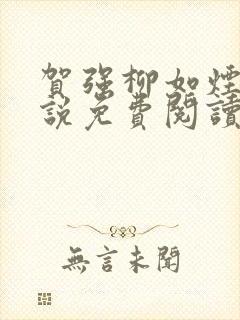 賀強柳如煙
說免費閱讀
無言未聞